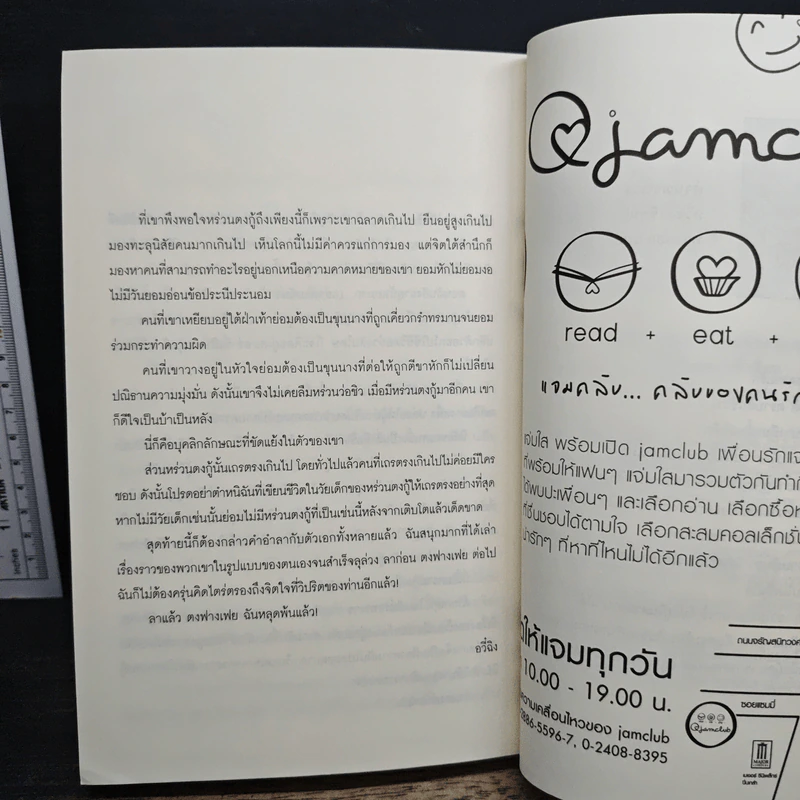 ที่เขาพึงพอใจหร่วนตงกู้ถึงเพียงนี้ก็เพราะเขาฉลาดเกินไป ยืนอยู่สูงเกินไป
มองทะลุนิสัยคนมากเกินไป เห็นโลกนี้ไม่มีค่าควรแก่การมอง แต่จิตใต้สำนึกก็
มองหาคนที่สามารถทำอะไรอยู่นอกเหนือความคาดหมายของเขา ยอมหักไม่ยอมงอ
ไม่มีวันยอมอ่อนข้อประนีประนอม
คนที่เขาเหยียบอยู่ใต้ฝ่าเท้าย่อมต้องเป็นขุนนางที่ถูกเคี่ยวกรำทรมานจนยอม
ร่วมกระทำความผิด
คนที่เขาวางอยู่ในหัวใจย่อมต้องเป็นขุนนางที่ต่อให้ถูกตีขาหักก็ไม่เปลี่ยน
ปณิธานความมุ่งมั่น ดังนั้นเขาจึงไม่เคยลืมหร่วนว่อชิว เมื่อมีหร่วนตงกู้มาอีกคน เขา
ก็ดีใจเป็นบ้าเป็นหลัง
นี่ก็คือบุคลิกลักษณะที่ขัดแย้งในตัวของเขา
ส่วนหร่วนตงกู้นั้นเถรตรงเกินไป โดยทั่วไปแล้วคนที่เถรตรงเกินไปไม่ค่อยมีใคร
ชอบ ดังนั้นโปรดอย่าตำหนิฉันที่เขียนชีวิตในวัยเด็กของหร่วนตงกู้ให้เถรตรงอย่างที่สุด
หากไม่มีวัยเด็กเช่นนั้นย่อมไม่มีหร่วนตงกู้ที่เป็นเช่นนี้หลังจากเติบโตแล้วเด็ดขาด
สุดท้ายนี้ก็ต้องกล่าวคำอำลากับตัวเอกทั้งหลายแล้ว ฉันสนุกมากที่ได้เล่า
เรื่องราวของพวกเขาในรูปแบบของตนเองจนสำเร็จลุล่วง ลาก่อน ตงฟางเฟย ต่อไป
ฉันก็ไม่ต้องครุ่นคิดไตร่ตรองถึงจิตใจที่วิปริตของท่านอีกแล้ว!
ลาแล้ว ตงฟางเฟย ฉันหลุดพ้นแล้ว!
อวี๋ฉิง
jamc
read + eat +
แจมคลับ... คลับของคนรัก
แจ่มใส พร้อมเปิด jamclub เพื่อนรักแจ
ที่พร้อมให้แฟนๆ แจ่มใสมารวมตัวกันทำกิ
ได้พบปะเพื่อนๆ และเลือกอ่าน เลือกซื้อห
ที่ชื่นชอบได้ตามใจ เลือกสะสมคอลเล็กชั่น
น่ารักๆ ที่หาที่ไหนไม่ได้อีกแล้ว
ให้แจมทุกวัน
10.00 - 19.00 น.
ความเคลื่อนไหวของ jamclub
2886-5596-7, 0-2408-8395
ถนนจรัญสนิทวงศ์
ซอยแซมมี่
jamclub
MAJOR
เมเจอร์ ซีนีเพล็กซ์
ปิ่นเกล้า
inches